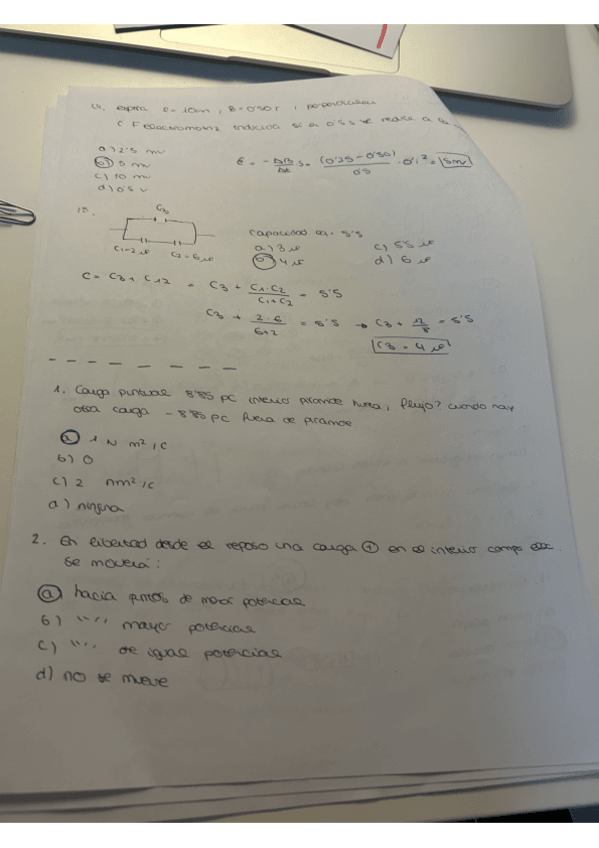 14. espira l = 10cm, B = 0'50 T, perpendicular
¿ F electromotriz inducida si en 0'5 s se reduce a la
a) 2'5 mv
b) 5 mv
c) 10 mv
d) 0'5 v
ε = - ΔB/Δt · S = (0'25 - 0'50)/0'5 · 0'1² = 5mv
15.
C3
C1=2 μF C2=6 μF
capacidad eq = 5'5
a) 3 μF c) 5'5 μF
b) 4 μF d) 6 μF
C = C3 + C12 = C3 + C1·C2/C1+C2 = 5'5
C3 + 2·6/6+2 = 5'5 → C3 + 12/8 = 5'5
C3 = 4 μF
1. Carga puntual 8'85 pC interior piramide hueca, flujo? cuando hay
otra carga - 8'85 pC fuera de piramide
a) 1 N m²/C
b) 0
c) 2 Nm²/C
d) ninguna
2. En libertad desde el reposo una carga + en el interior campo elec.
se moverá:
a) hacia puntos de menor potencial
b) "" mayor potencial
c) "" de igual potencial
d) no se mueve